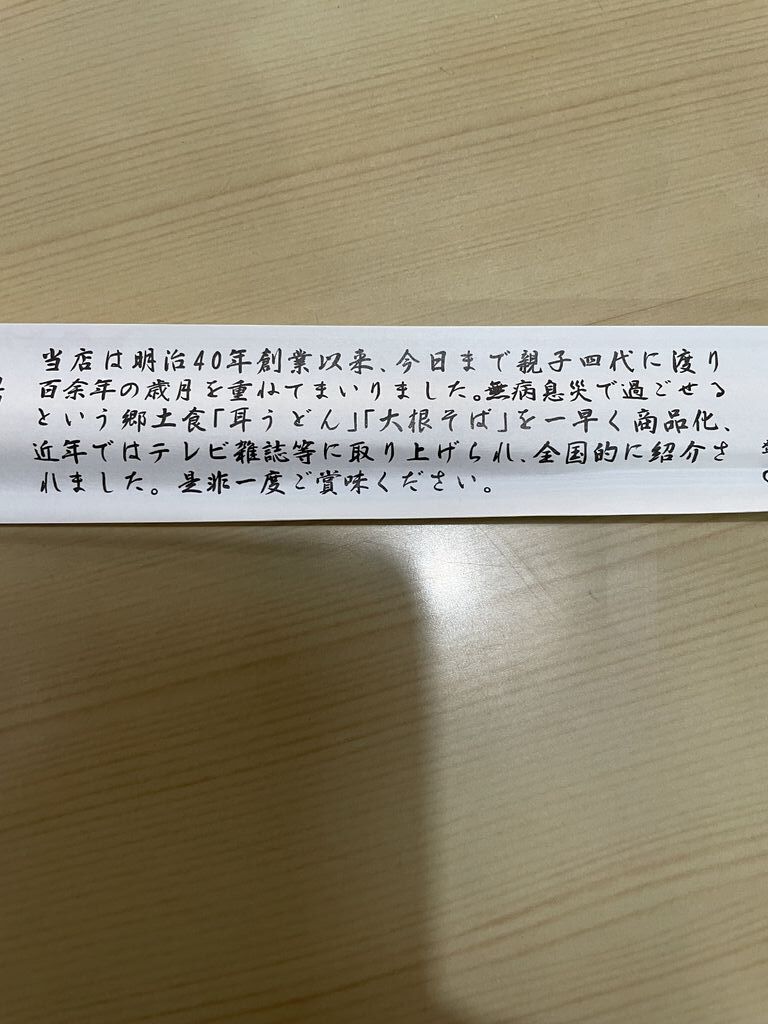 当店は明治40年創業以来、今日まで親子四代に渡り
百余年の歳月を重ねてまいりました。無病息災で過ごせる
という郷土食「耳うどん」「大根そば」を一早く商品化、
近年ではテレビ雑誌等に取り上げられ、全国的に紹介さ
れました。是非一度ご賞味ください。